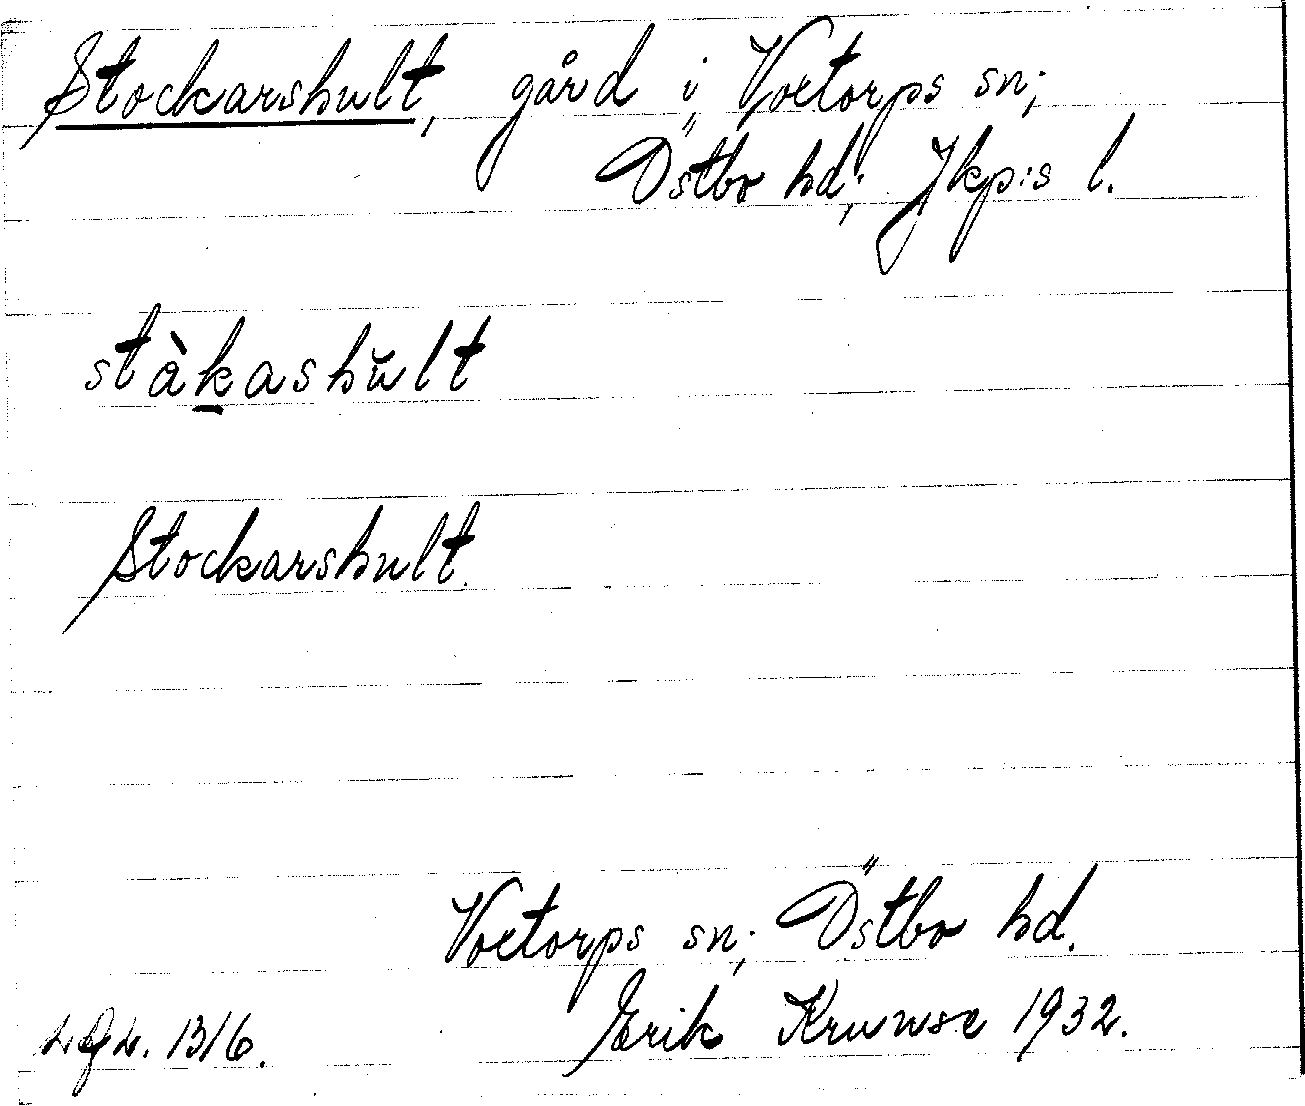 Stockarshult, gård i Voxtorps sn;
Östbo hd; Jkp:s l.
stàk̲ashŭlt
Stockarshult.
Voxtorps sn; Östbo hd.
Erik 1932.
1316.